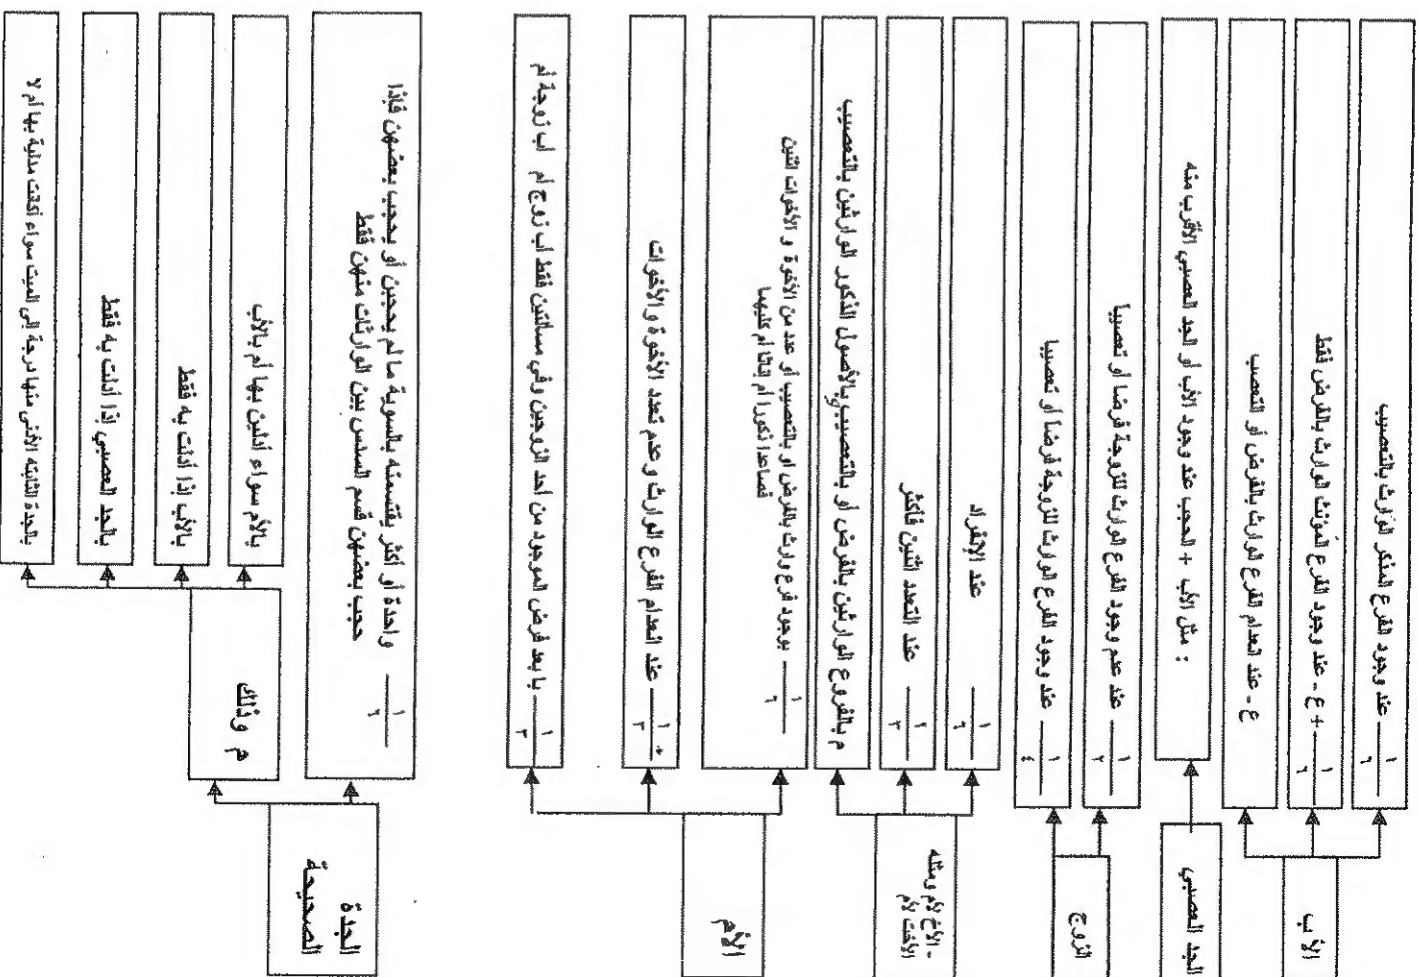 الأب
١/٦ عند وجود الفرع المذكر الوارث بالتعصيب
١/٦ + ع - عند وجود الفرع المؤنث الوارث بالفرض فقط
ع - عند انعدام الفرع الوارث بالفرض أو التعصيب
الجد العصبي
: مثل الأب + الحجب عند وجود الأب أو الجد العصبي الأقرب منه
الزوج
١/٢ عند عدم وجود الفرع الوارث للزوجة فرضا أو تعصيبا
١/٤ عند وجود الفرع الوارث للزوجة فرضا أو تعصيبا
- الأخ لأم ومثله
الأخت لأم
١/٦ عند الإنفراد
١/٣ عند التعدد اثنين فأكثر
م بالفروع الوارثين بالفرض أو بالتعصيب وبالأصول الذكور الوارثين بالتعصيب
الأم
١/٦ بوجود فرع وارث بالفرض او بالتعصيب أو عدد من الأخوة و الأخوات اثنين
فصاعدا ذكورا أم إناثا أم كليهما
١/٣ عند انعدام الفرع الوارث وعدم تعدد الأخوة و الأخوات
١/٣ با بعد فرض الموجود من أحد الزوجين وفي مسالتين فقط اب زوج أم اب زوجة أم
الجدة
الصحيحة
١/٦ واحدة أو أكثر يقتسمنه بالسوية ما لم يحجبن أو يحجب بعضهن فإذا
حجب بعضهن قسم السدس بين الوارثات منهن فقط
م وذلك
بالأم سواء أدلين بها أم بالأب
بالأب إذا أدلت به فقط
بالجد العصبي إذا أدلت به فقط
بالجدة الثابته الأدنى منها درجة إلى الميت سواء أكانت مدلية بها أم لا